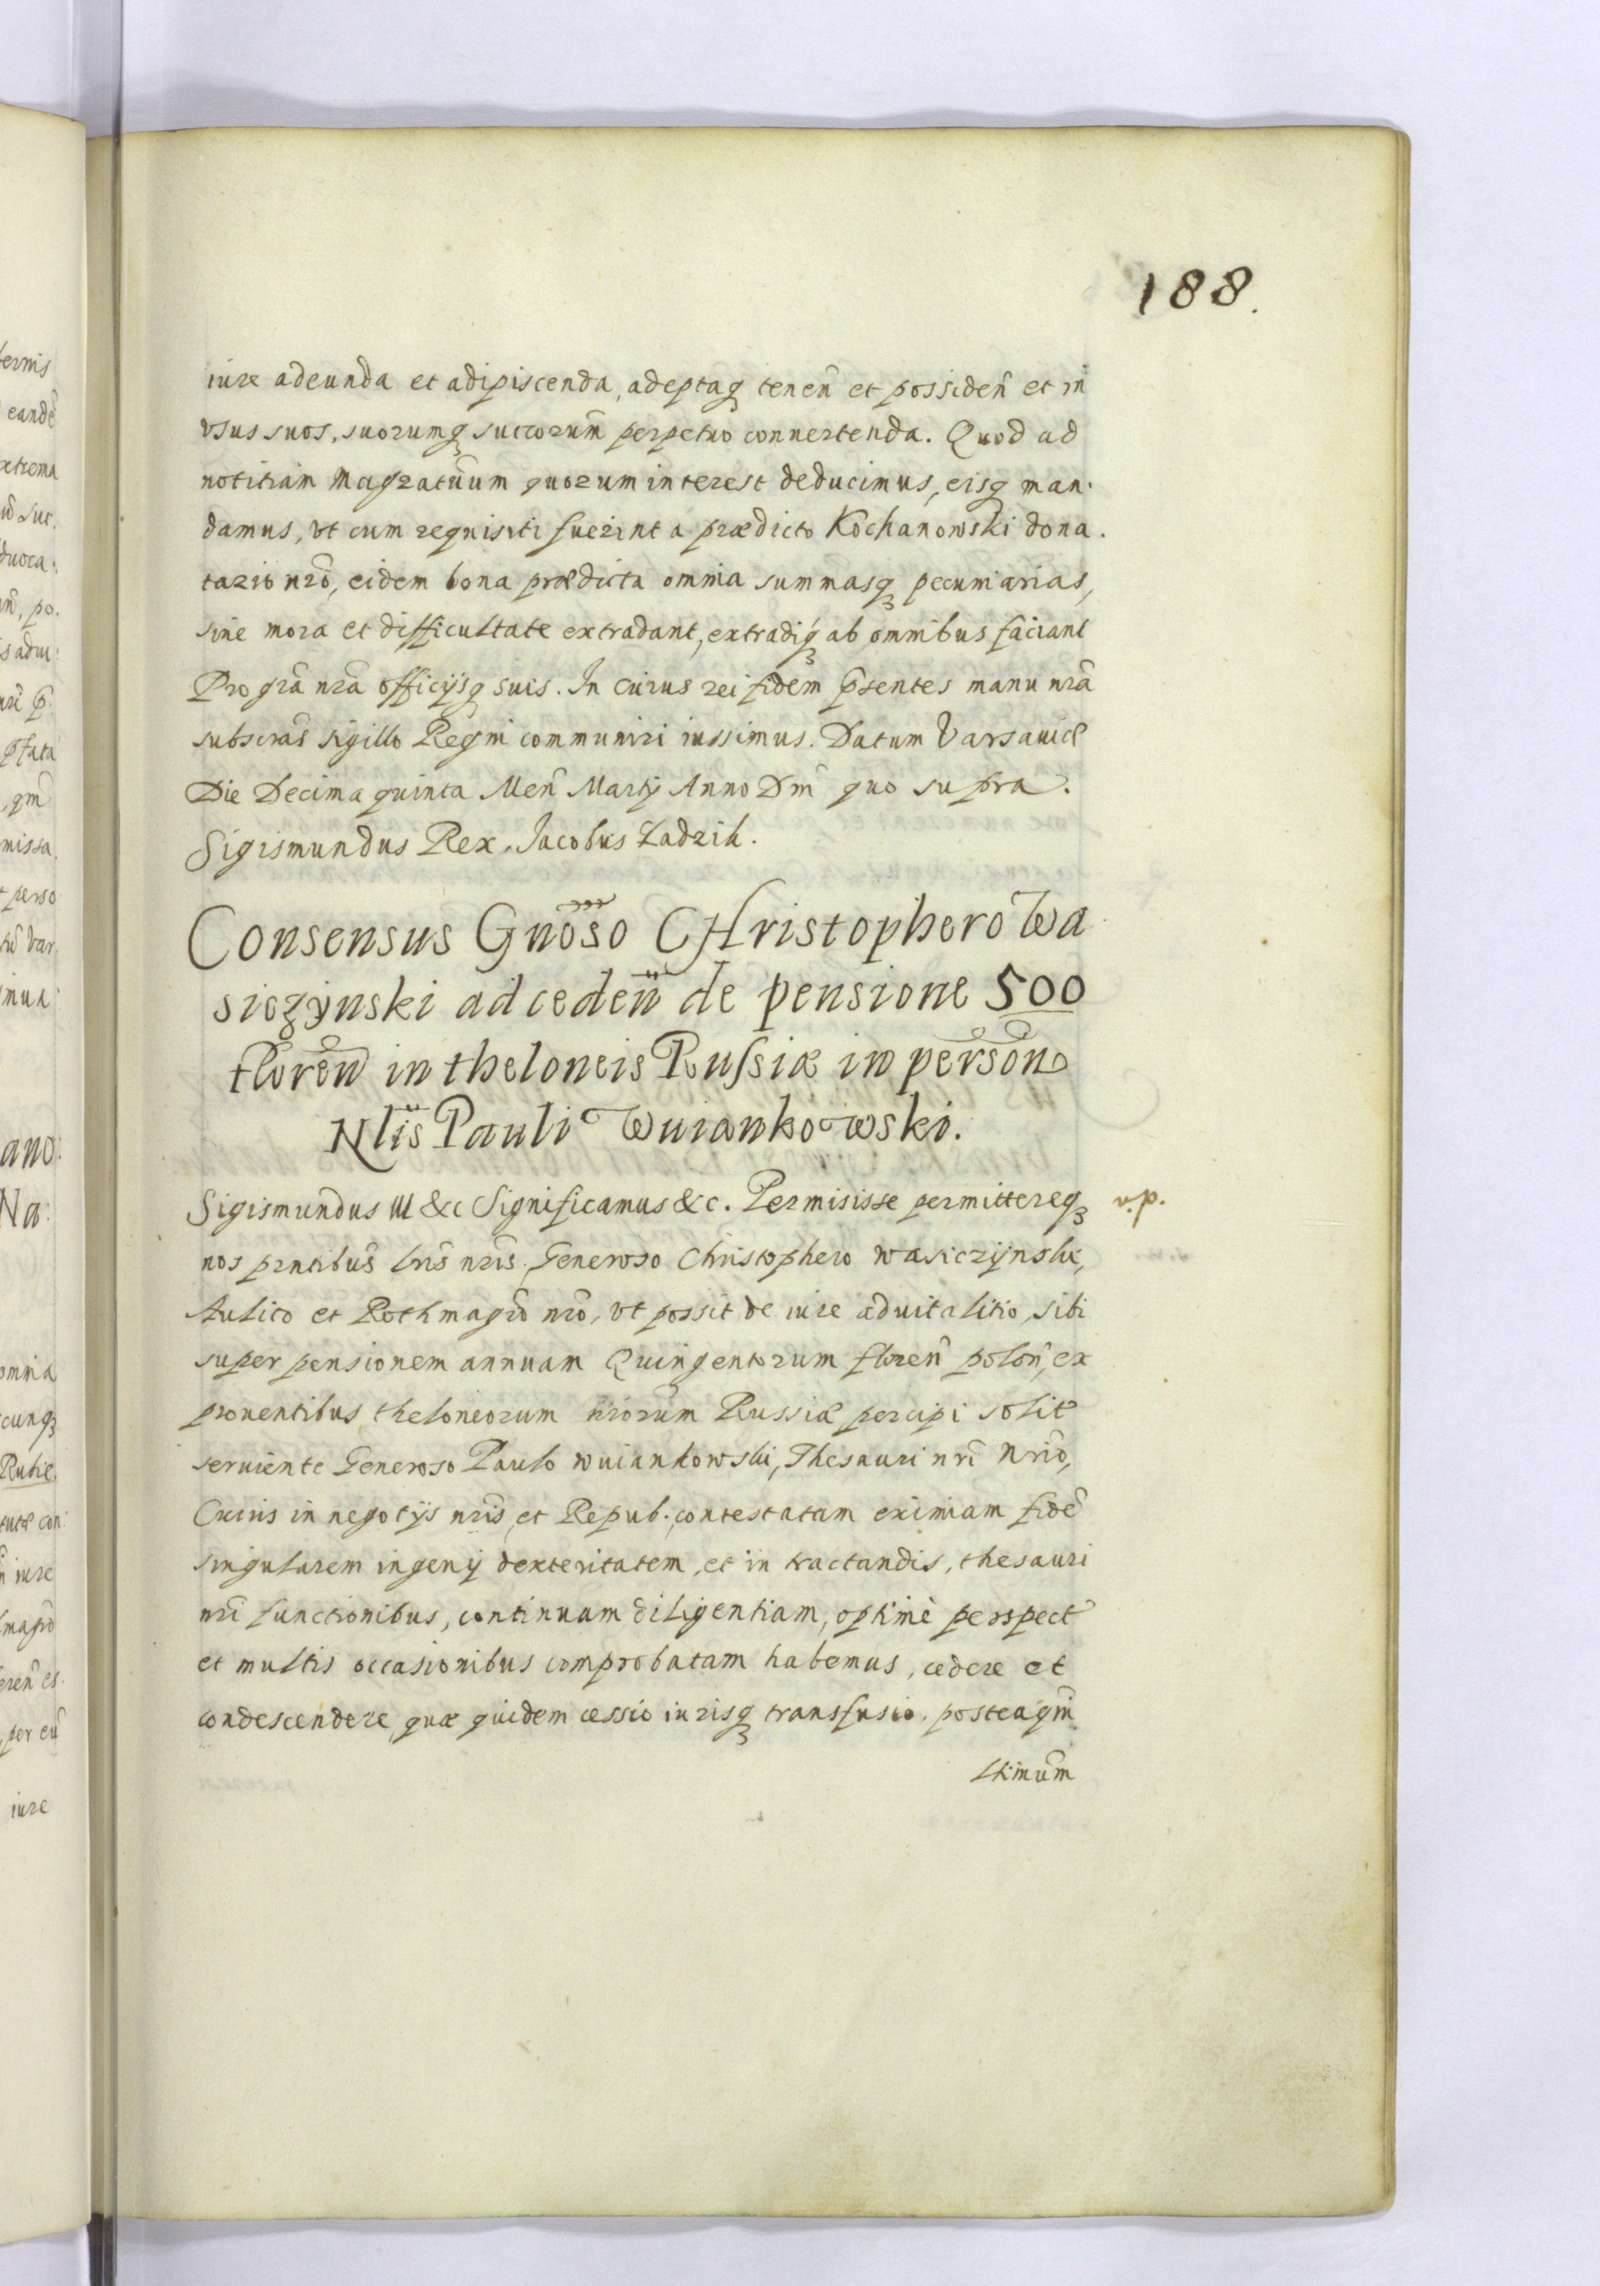 188.
iure adeunda et adipiscenda, adeptaqꝫ tenen̄ et possiden̄ et in
vsus suos, suorumqꝫ succorum̄ perpetuo conuertenda. Quod ad
notitiam Magratuum quorum interest deducimus, eisqꝫ man-
damus, vt cum requisiti fuerint a prædicto Kochanowski dona-
tario nr̄o, eidem bona prædicta omnia summasqꝫ pecuniarias,
sine mora et difficultate extradant, extradiqꝫ ab omnibus faciant
Pro gr̄a nr̄a officijsqꝫ suis. In cuius rei fidem p̄sentes manu nr̄a
subscras̄ sigillo Regni communiri iussimus. Datum Varsauiæ
Die Decima quinta Men̄ Martij Anno Dn̄i quo supra.
Sigismundus Rex. Jacobus Zadzik.
Consensus Gnōso CHristophero Wa
siczÿnski ad ceden̄ de pensione 500
floren̄ in theloneis Russiæ in person̄
Nlis̄ Pauli Wuiankowski.
Sigismundus III &c Significamus &c. Permisisse permittereqꝫ
v.p.
nos pr̄ntibus lr̄is nr̄is Generoso Christophero Wasiczÿnski,
Aulico et Rothmagr̄o nr̄o, vt possit de iure aduitalitio, sibi
super pensionem annuam Quingentorum floren̄ polon̄, ex
prouentibus theloneorum nr̄orum Russiæ percipi solit̄
seruiente Generoso Paulo Wuiankowski, Thesauri nr̄i Nrīo,
Cuius in negotijs nr̄is et Repub. contestatam eximiam fidē
singularem ingenij dexteritatem, et in tractandis, thesauri
nr̄i functionibus, continuam diligentiam, optimè perspect̄
et multis occasionibus comprobatam habemus, cedere et
condescendere, quæ quidem cessio iurisqꝫ transfusio. posteaqm̄